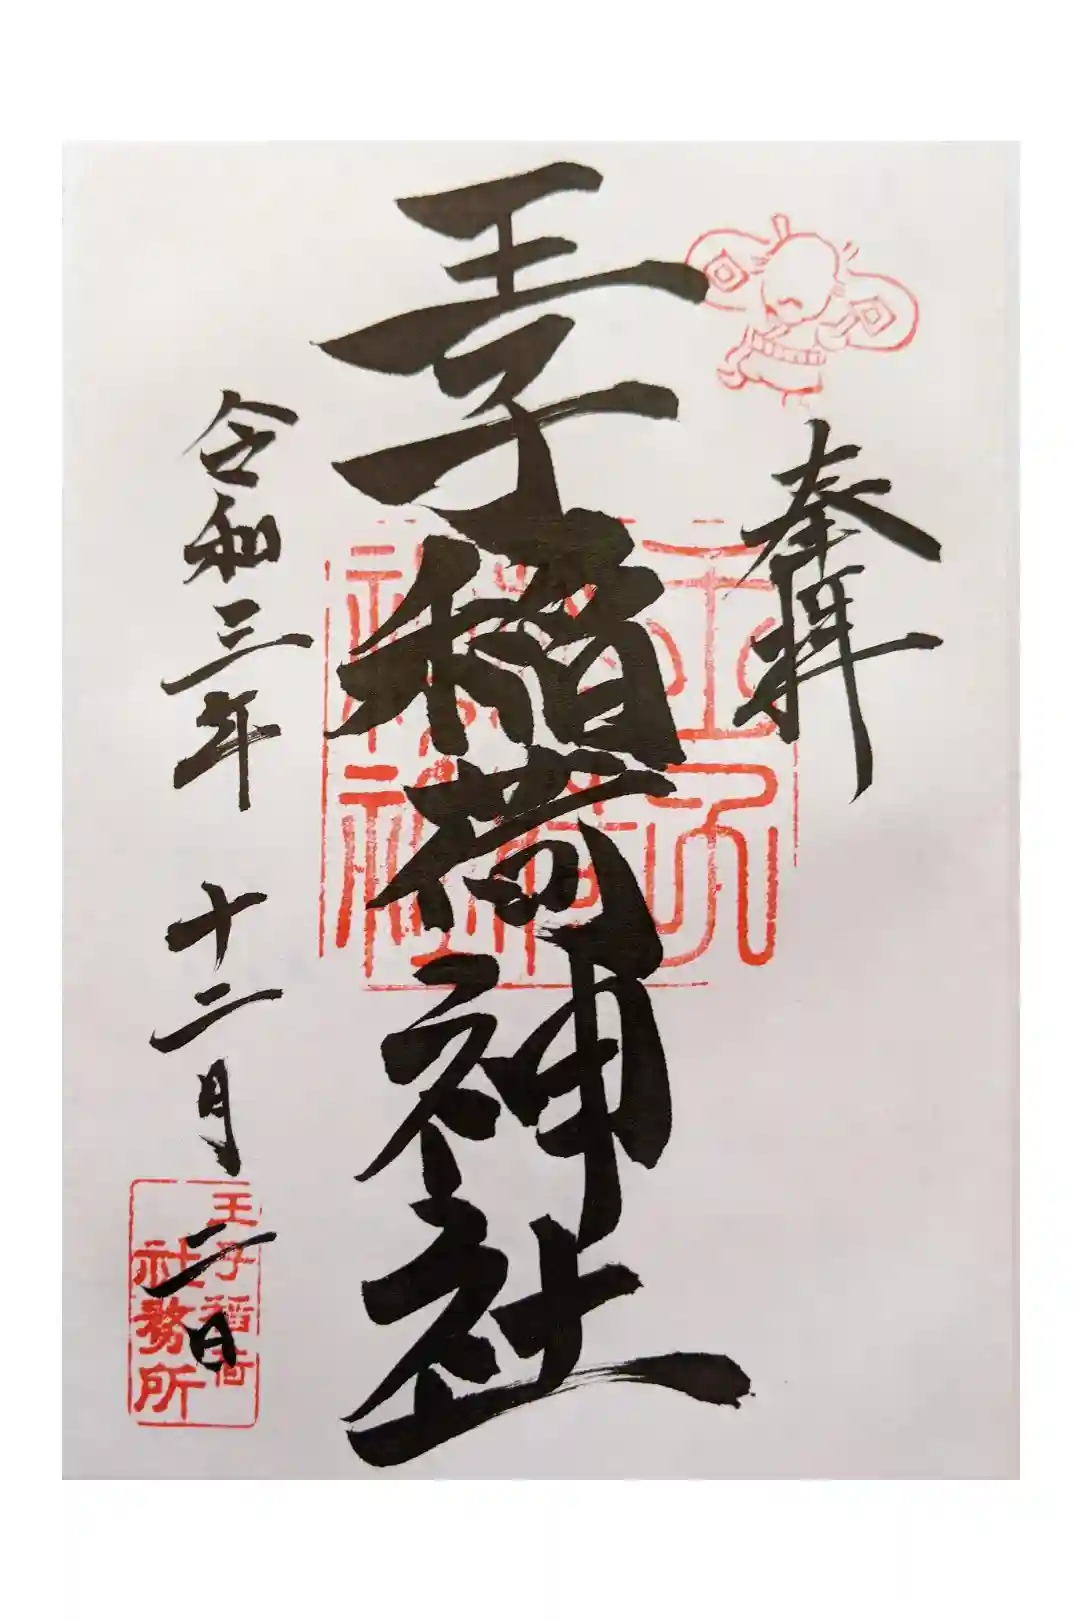 奉拝
王子稲荷神社
令和三年十二月二日
王子稲荷神社
王子稲荷
社務所